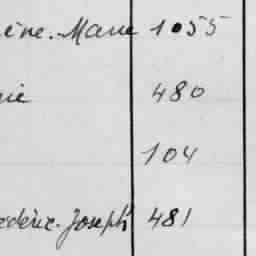 ène. Marie 1055
rie 480
104
édéric-Joseph 481